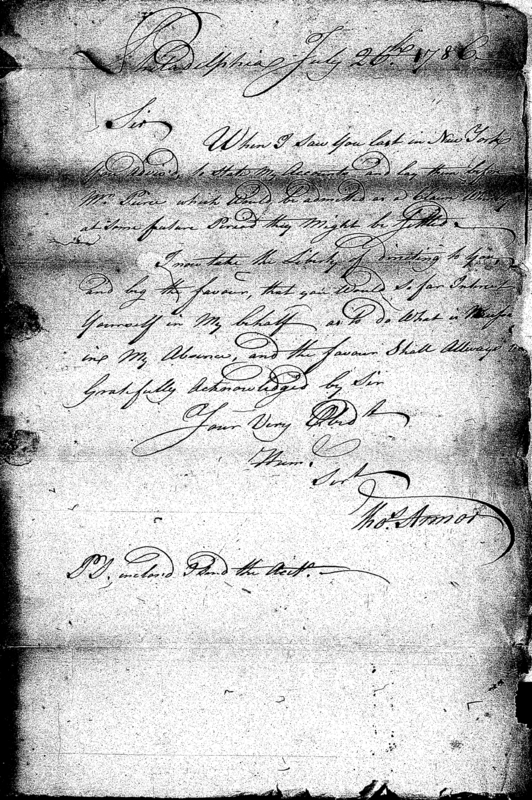 Philadelphia July 26th. 1786
Sir
When I Saw You last in New York
You advised to State My Accounts and lay them before
Mr. Pierce which Would be admitted as a Claim
at Some future Period they Might be Settled.
I now take the Liberty of directing to You,
and beg the favour, that you Would So far Interest
Yourself in My behalf as to do What is
in My Absence, and the favour Shall Allways
Gratefully Acknowledged by Sir
Your Very Obedt
Hum.
Servt
Thos. Armor
PS. inclosed I Send the Acct.